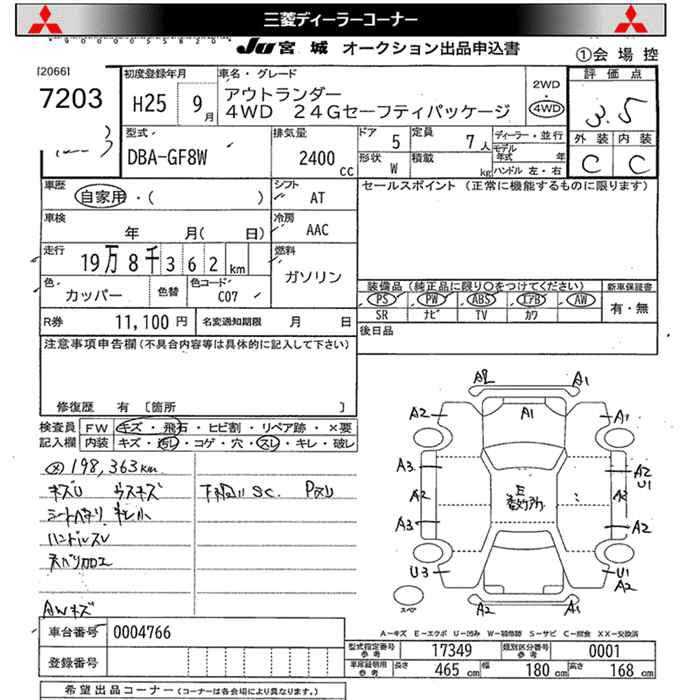 三菱ディーラーコーナー
JU 宮城 オークション出品申込書
①会場控
[2066]
7203
初度登録年月
H25 9月
車名・グレード
アウトランダー
4WD 24Gセーフティパッケージ
2WD
4WD
評価点
3.5
型式
DBA-GF8W
排気量
2400cc
ドア 5
定員 7人
形状 W
積載 kg
ディーラー・並行
モデル年式 年
ハンドル 左・右
外装 内装
C C
車歴
自家用・( )
シフト AT
セールスポイント (正常に機能するものに限ります)
車検
年 月( 日)
冷房 AAC
走行
19万8千362km
燃料
ガソリン
色
カッパー
色替
色コード
C07
装備品 (純正品に限り○をつけてください)
新車保証書
PS PW ABS エアB AW
SR ナビ TV カワ
有・無
R券 11,100円
名変通知期限 月 日
後日品
注意事項申告欄(不具合内容等は具体的に記入して下さい)
修復歴 有 〔箇所 〕
検査員記入欄
FW キズ・飛石・ヒビ割・リペア跡・×要
内装 キズ・汚レ・コゲ・穴・スレ・キレ・破レ
198,363km
キズU ウスキズ
下廻り SC.
シートヘタリ キレ小
ハンドルスレ
AWキズ
A2 A1
A2 A1 A1
A3 A2 U1
A2 E 数ヶ所 A2
A3 A2
U3 U1 A2
スペ A2 A1
A―キズ E―エクボ U―凹み W―補修跡 S―サビ C―腐食 XX―交換済
車台番号 0004766
登録番号
型式指定番号参考 17349
類別区分番号参考 0001
車庫証明用参考 長さ 465cm 幅 180cm 高さ 168cm
希望出品コーナー (コーナーは各会場により異なります。)